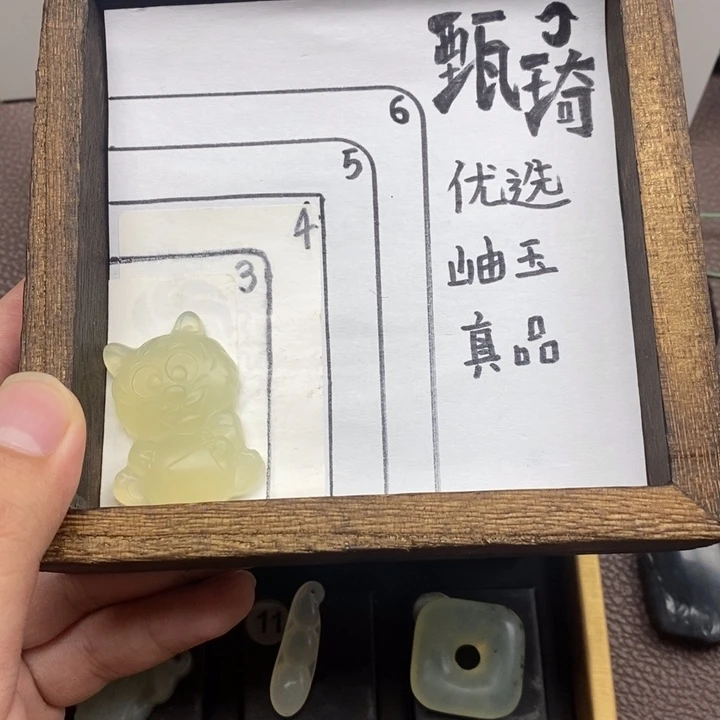 甄琦
优选
岫玉
真品
6
5
4
3
11